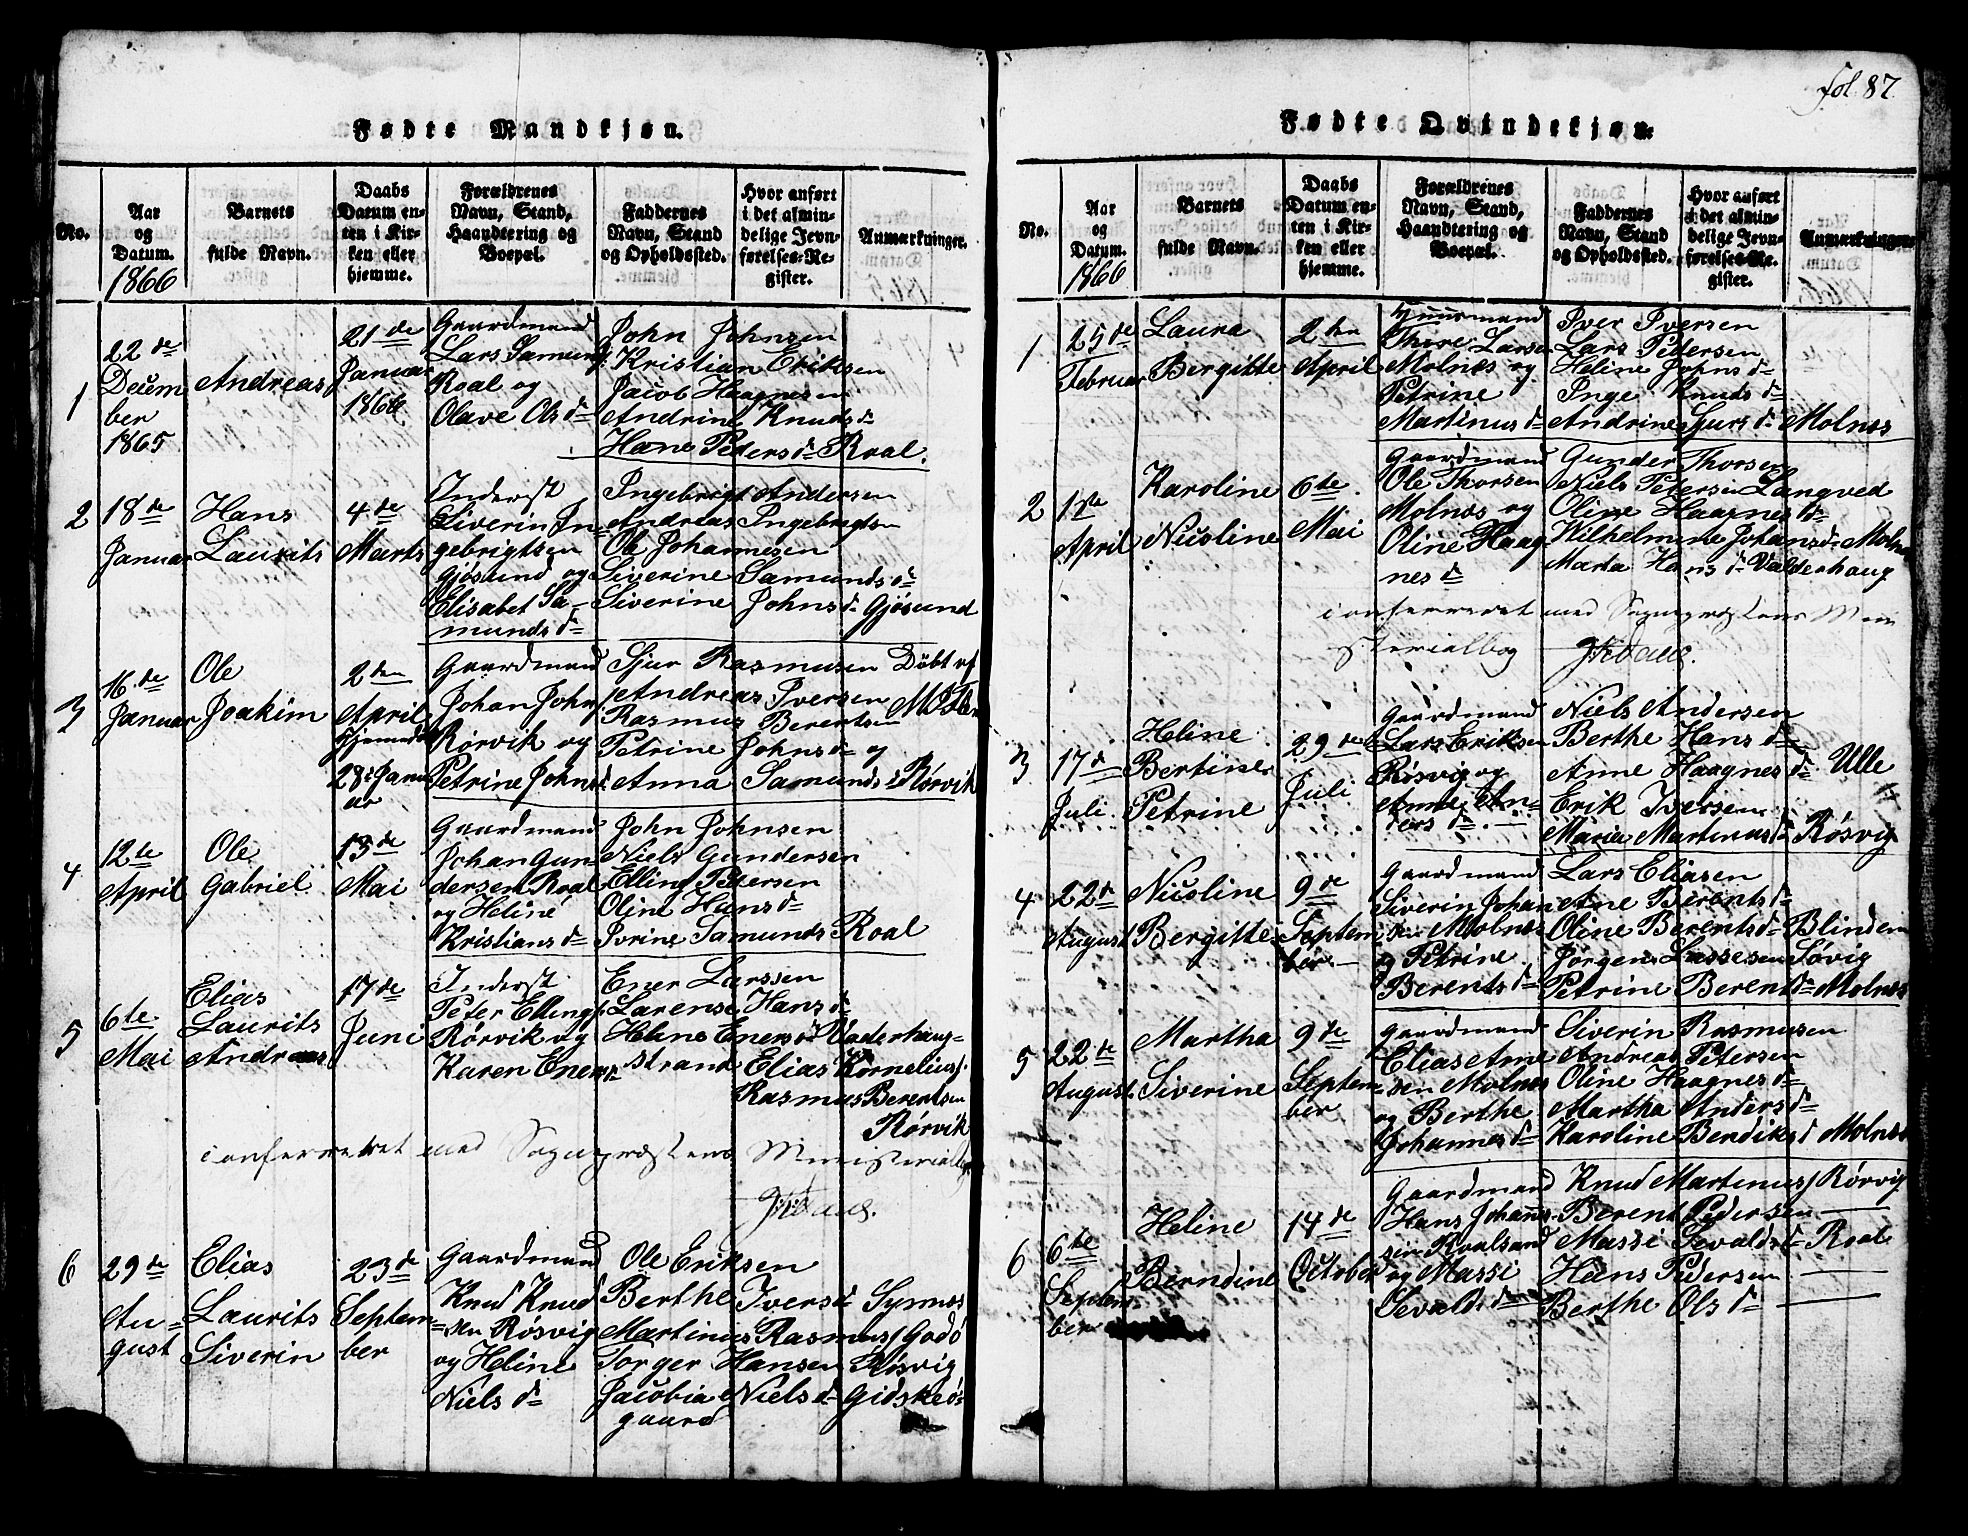 fol. 87
Fødte Mandkjøn.
No.
Aar og Datum. 1866
Barnets fulde Navn.
Daabs Datum enten i Kirken eller hjemme.
Forældrenes Navn, Stand, Haandtering og Boepæl.
Faddernes Navn, Stand og Opholdssted.
Hvor anført i det almindelige Jevnførelses-Register.
Anmærkninger.
1
22de
Decem
ber
1865
Andreas
21de
Januar
1866
Gaardmand
Lars Samunds.
Roal og
Olave Olsd
John Johnsen
Kristian Eriksen
Jacob Haagnesen
Andrine Knudsd
Hane Pedersd Roal.
2
18de
Januar
Hans
Laurits
4de
Marts
Inderst
Siverin In-
gebrigtsen
Gjøsund og
Elisabet Sa-
mundsd
Ingebrigt Andersen
Andreas Ingebrigtsen
Ole Johannesen
Siverine Samundsd
Siverine Johnsd Gjøsund
3
16de
Januar
Ole
Joakim
2den
April
hjemedøbt
28de Janu
ar
Gaardmand
Johan Johns.
Rørvik og
Petrine Johnsd
Sjur Rasmusen
Andreas Iversen
Rasmus Berentsen
Petrine Johnsd og
Anna Samundsd Rørvik
Døbt af
4
12te
April
Ole
Gabriel
13de
Mai
Gaardmand
Johan Gun-
dersen Roal
og Heline
Kristiansd
John Johnsen
Niels Gundersen
Elling Petersen
Oline Hansd
Ivrine Samunds Roal
5
6te
Mai
Elias
Laurits
Andreas
17de
Juni
Inderst
Peter Ellings.
Rørvik og
Karen Enersd
Ener Larssen
Larense Hansd
Heline Enersd Vaderhaug-
strand Elias Kornelius.
Rasmus Berentsen
Rørvik
confereret med Sognepræstens Ministerialbog
6
29de
Au-
gust
Elias
Laurits
Siverin
23de
Septem
ber
Gaardmand
Knud Knud
sen Røsvig
og Heline
Nielsd
Ole Eriksen
Berthe Iversd Synnes
Martinus Rasmus. Godø
Torger Hansen Røsvig
Jacobia Nielsd Gidskeø-
gaard
Fødte Qvindekjøn.
No.
Aar og Datum. 1866
Barnets fulde Navn.
Daabs Datum enten i Kirken eller hjemme.
Forældrenes Navn, Stand, Haandtering og Boepæl.
Faddernes Navn, Stand og Opholdssted.
Hvor anført i det almindelige Jevnførelses-Register.
Anmærkninger.
1
25de
Februar
Laura
Bergitte
2den
April
Huusmand
Thore Larsen
Molnes og
Petrine
Martinusd
Iver Iversen
Lars Petersen
Heline Johnsd
Inge Knudsd
Andrine Sjursd Molnes
2
12te
April
Karoline
Nicoline
6te
Mai
Gaardmand
Ole Thorsen
Molnes og
Oline Haag
nesd
Gunder Thorsen
Niels Petersen Langved
Oline Haagnesd
Wilhelmine Johansd Molnes
Marta Hansd Valderhaug
confereret med Sognepræstens Mini
sterialbog
3
17d
Juli.
Heline
Bertine
Petrine
29de
Juli
Gaardmand
Lars Eriksen
Røsvig og
Anne An-
dersd
Niels Andersen
Berthe Hansd
Anne Haagnesd Ulle
Erik Iversen
Maria Martinusd Røsvig
4
22d
August
Nicoline
Bergitte
9de
Septem
ber
Gaardmand
Siverin Johan
sen Molnes
og Petrine
Berentsd
Lars Eliasen
Ane Berentsd
Oline Berentsd Blindem
Jørgen Lassesen Søvig
Petrine Berentsd Molnes
5
22de
August
Martha
Siverine
9de
Septem-
ber
Gaardmand
Elias Arne
sen Molnes
og Berthe
Johannesd
Siverin Rasmusen
Andreas Petersen
Oline Haagnesd
Martha Andersd
Karoline Bendiksd Molnes
6
6te
Septem
ber
Heline
Berndine
14de
October
Gaardmand
Hans Johanne
sen Roalsand
og Massi
Sevaldsd
Knud Martinus. Rørvig
Berent Pedersen
Massi Sevaldsd Roal
Hans Pedersen
Berthe Olsd